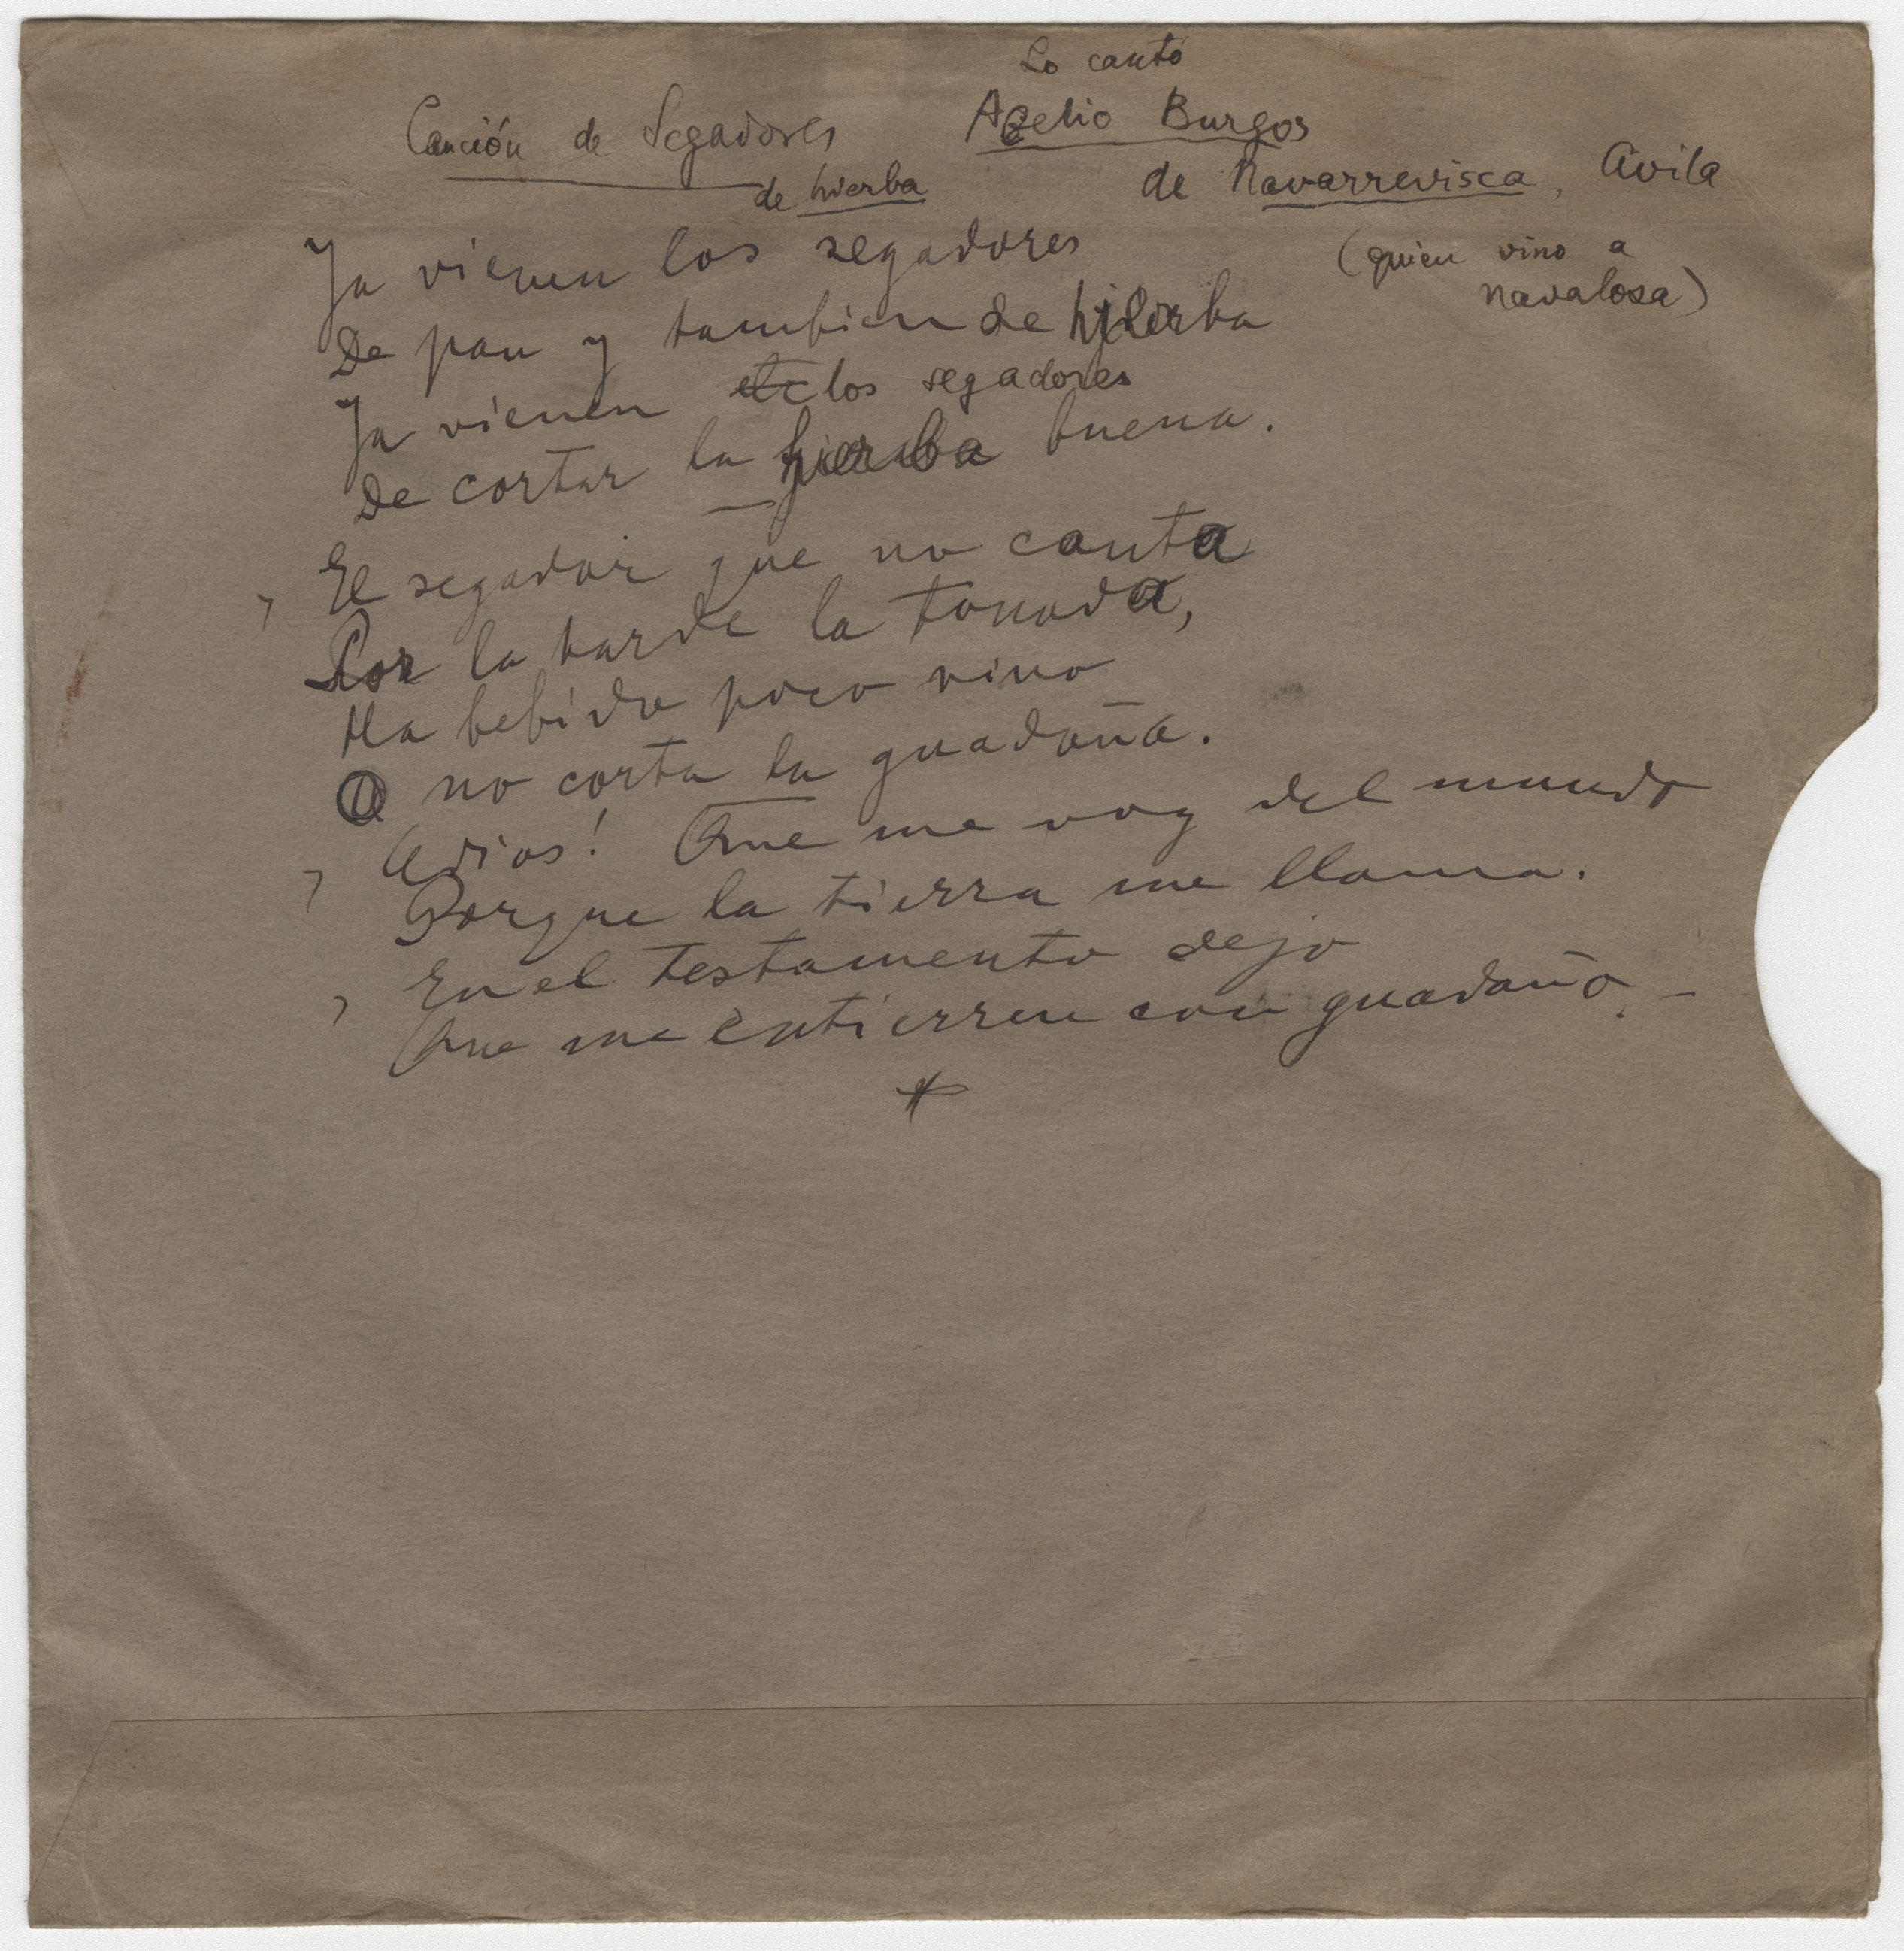 Lo cantó
Canción de Segadores
de hierba
Burgos
de Navarrevisca, Avila
(quien vino a
navalosa)
Ya vienen los segadores
De pan y tambien de hierba
Ya vienen etc los segadores
De cortar la hierba buena.
El segador que no canta
Por la tarde la tonada,
Ha bebido poco vino
O no corta la guadaña.
Adios! Que me voy del mundo
Porque la tierra me llama.
En el testamento dejo
Que me entierren con guadaña. -